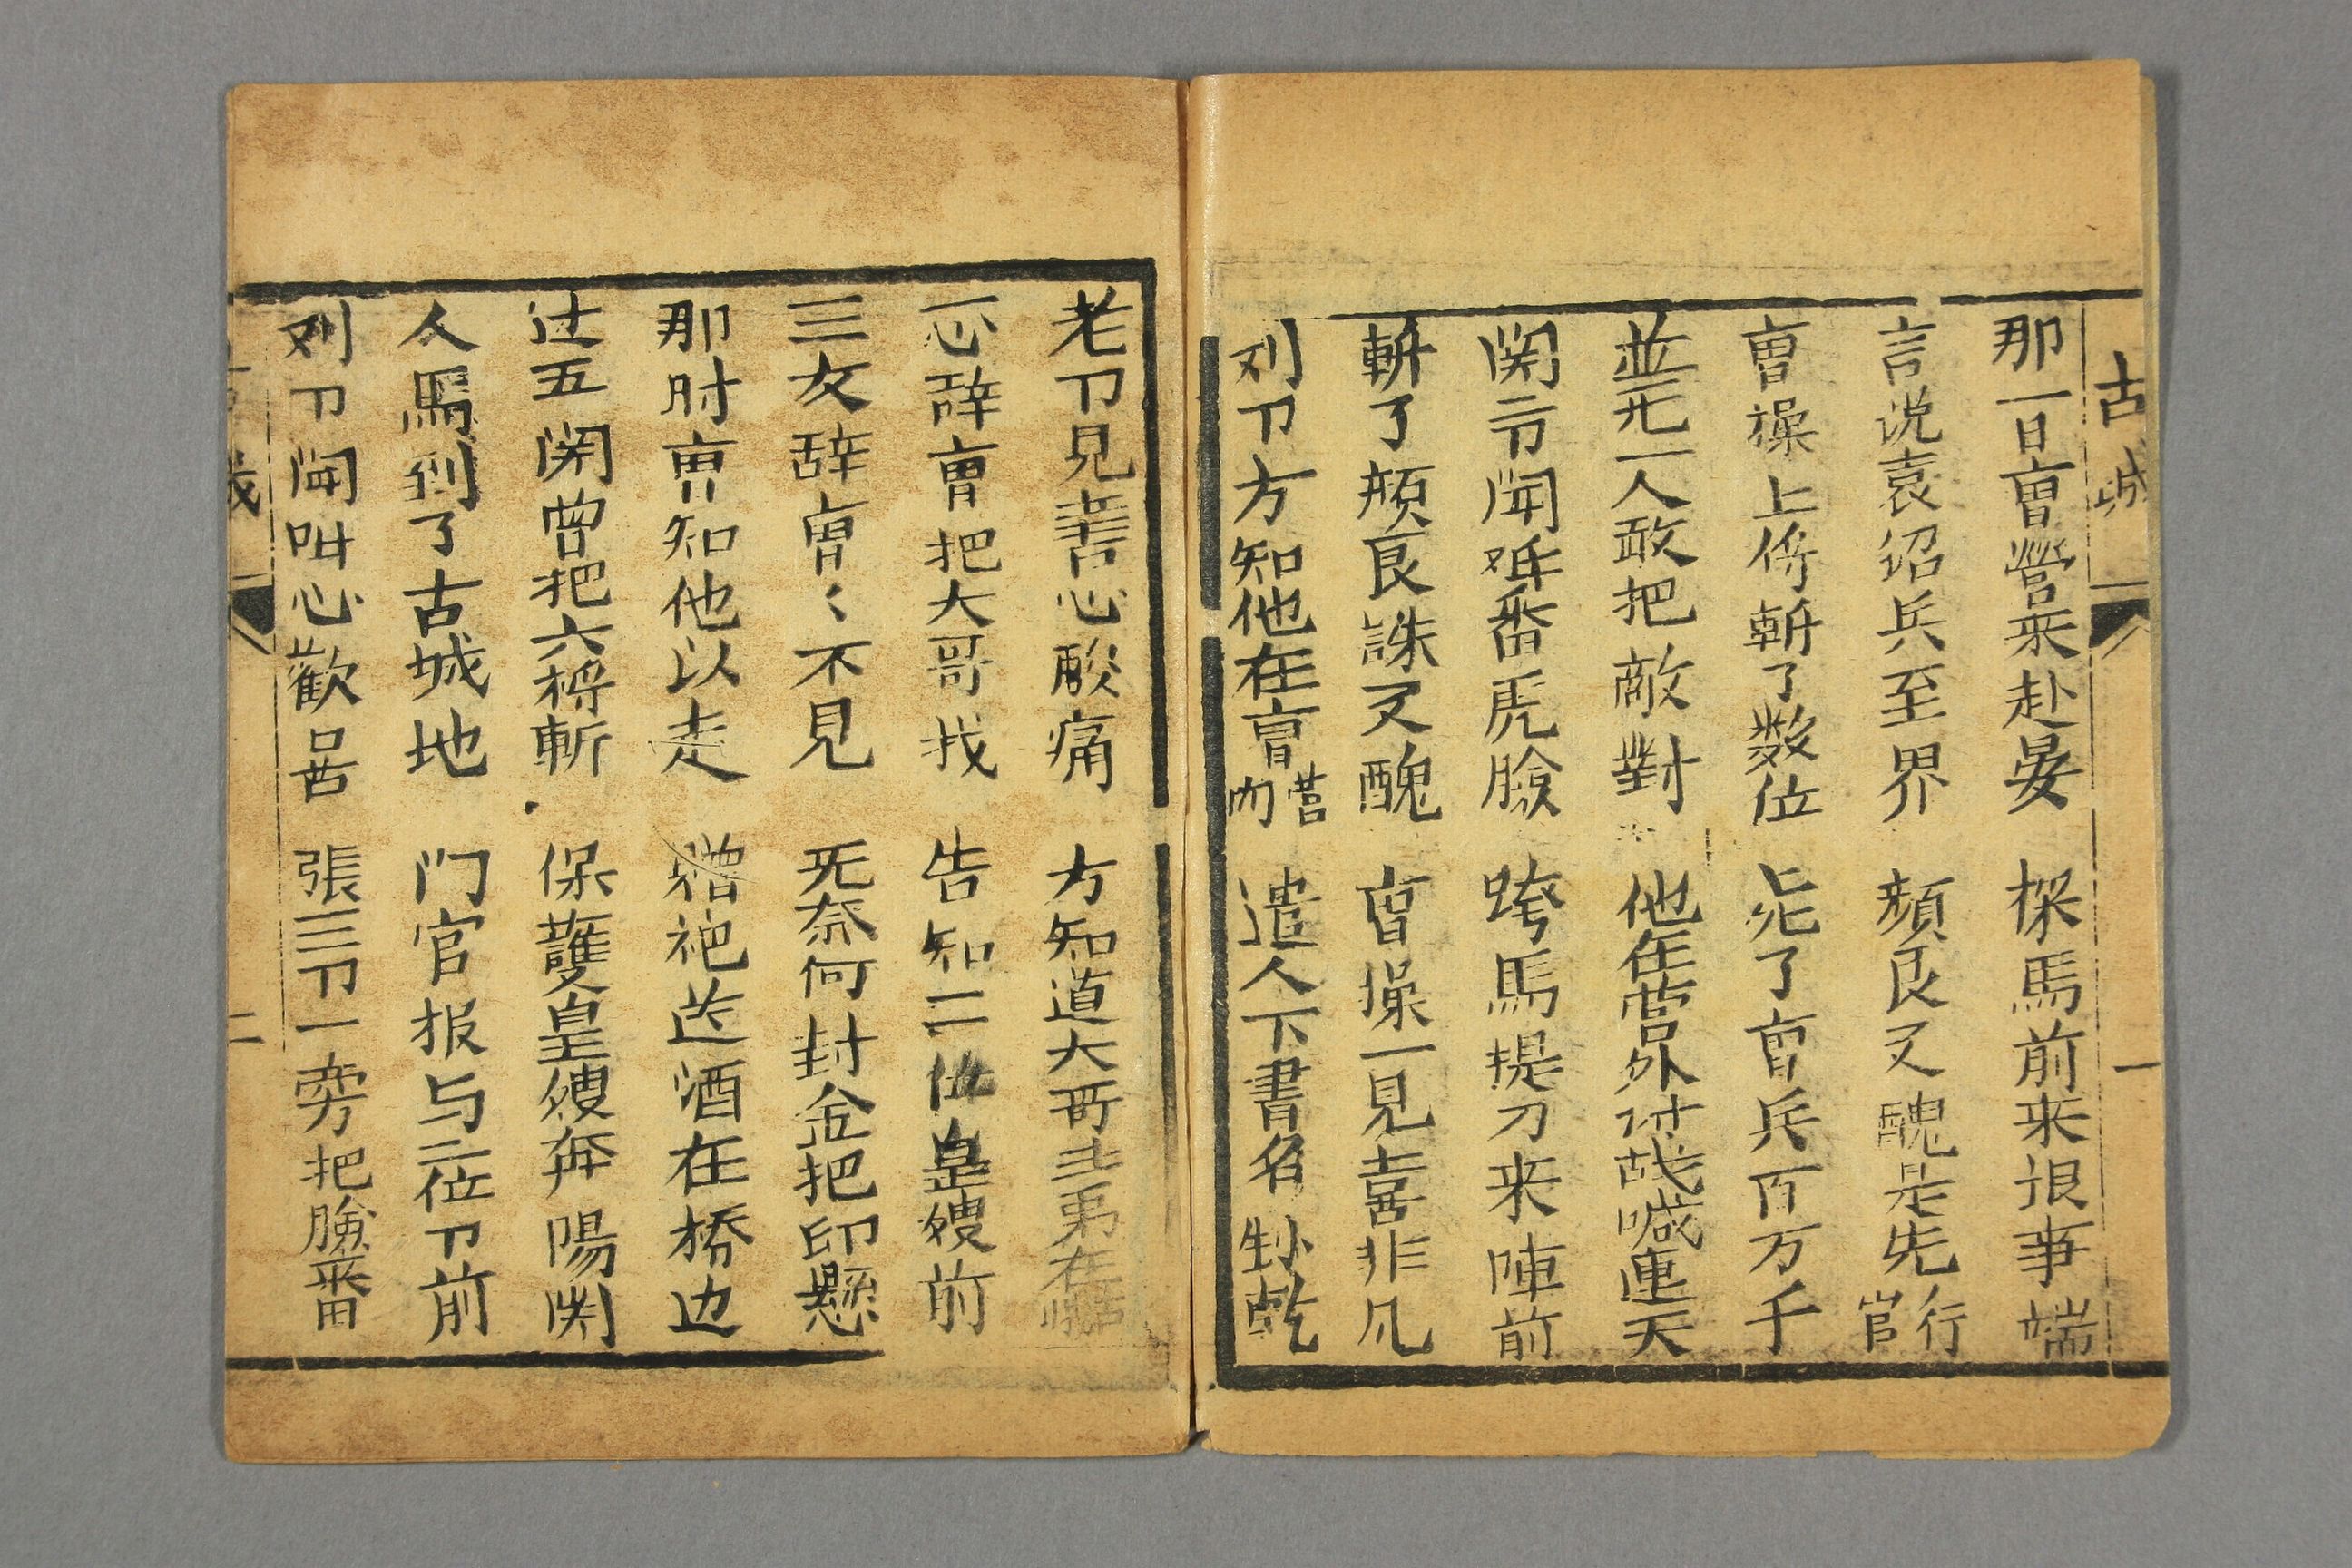 古城
一
那一日曺營来赴晏 探馬前来報事端
言说袁绍兵至界 颜良文醜是先行官
曺操上伓斬了数位 唬了曺兵百万千
並无一人敢把敵對 他在营外讨战喊連天
関爷闻呼番虎臉 跨馬提刀来陣前
斬了颜良誅文醜 曺操一見喜非凡
刘卩方知他在曺营内 遣人下書名
老卩見書心酸痛 方知道大哥
心辞曺把大哥找 告知二位皇嫂前
三次辞曺〻不見 无奈何封金把印懸
那时曺知他以走 赠袍送酒在桥边
过五関曾把六将斬 保護皇嫂奔陽関
人馬到了古城地 门官报与二位卩前
刘卩闻叫心歡喜 張三卩一旁把臉番
二